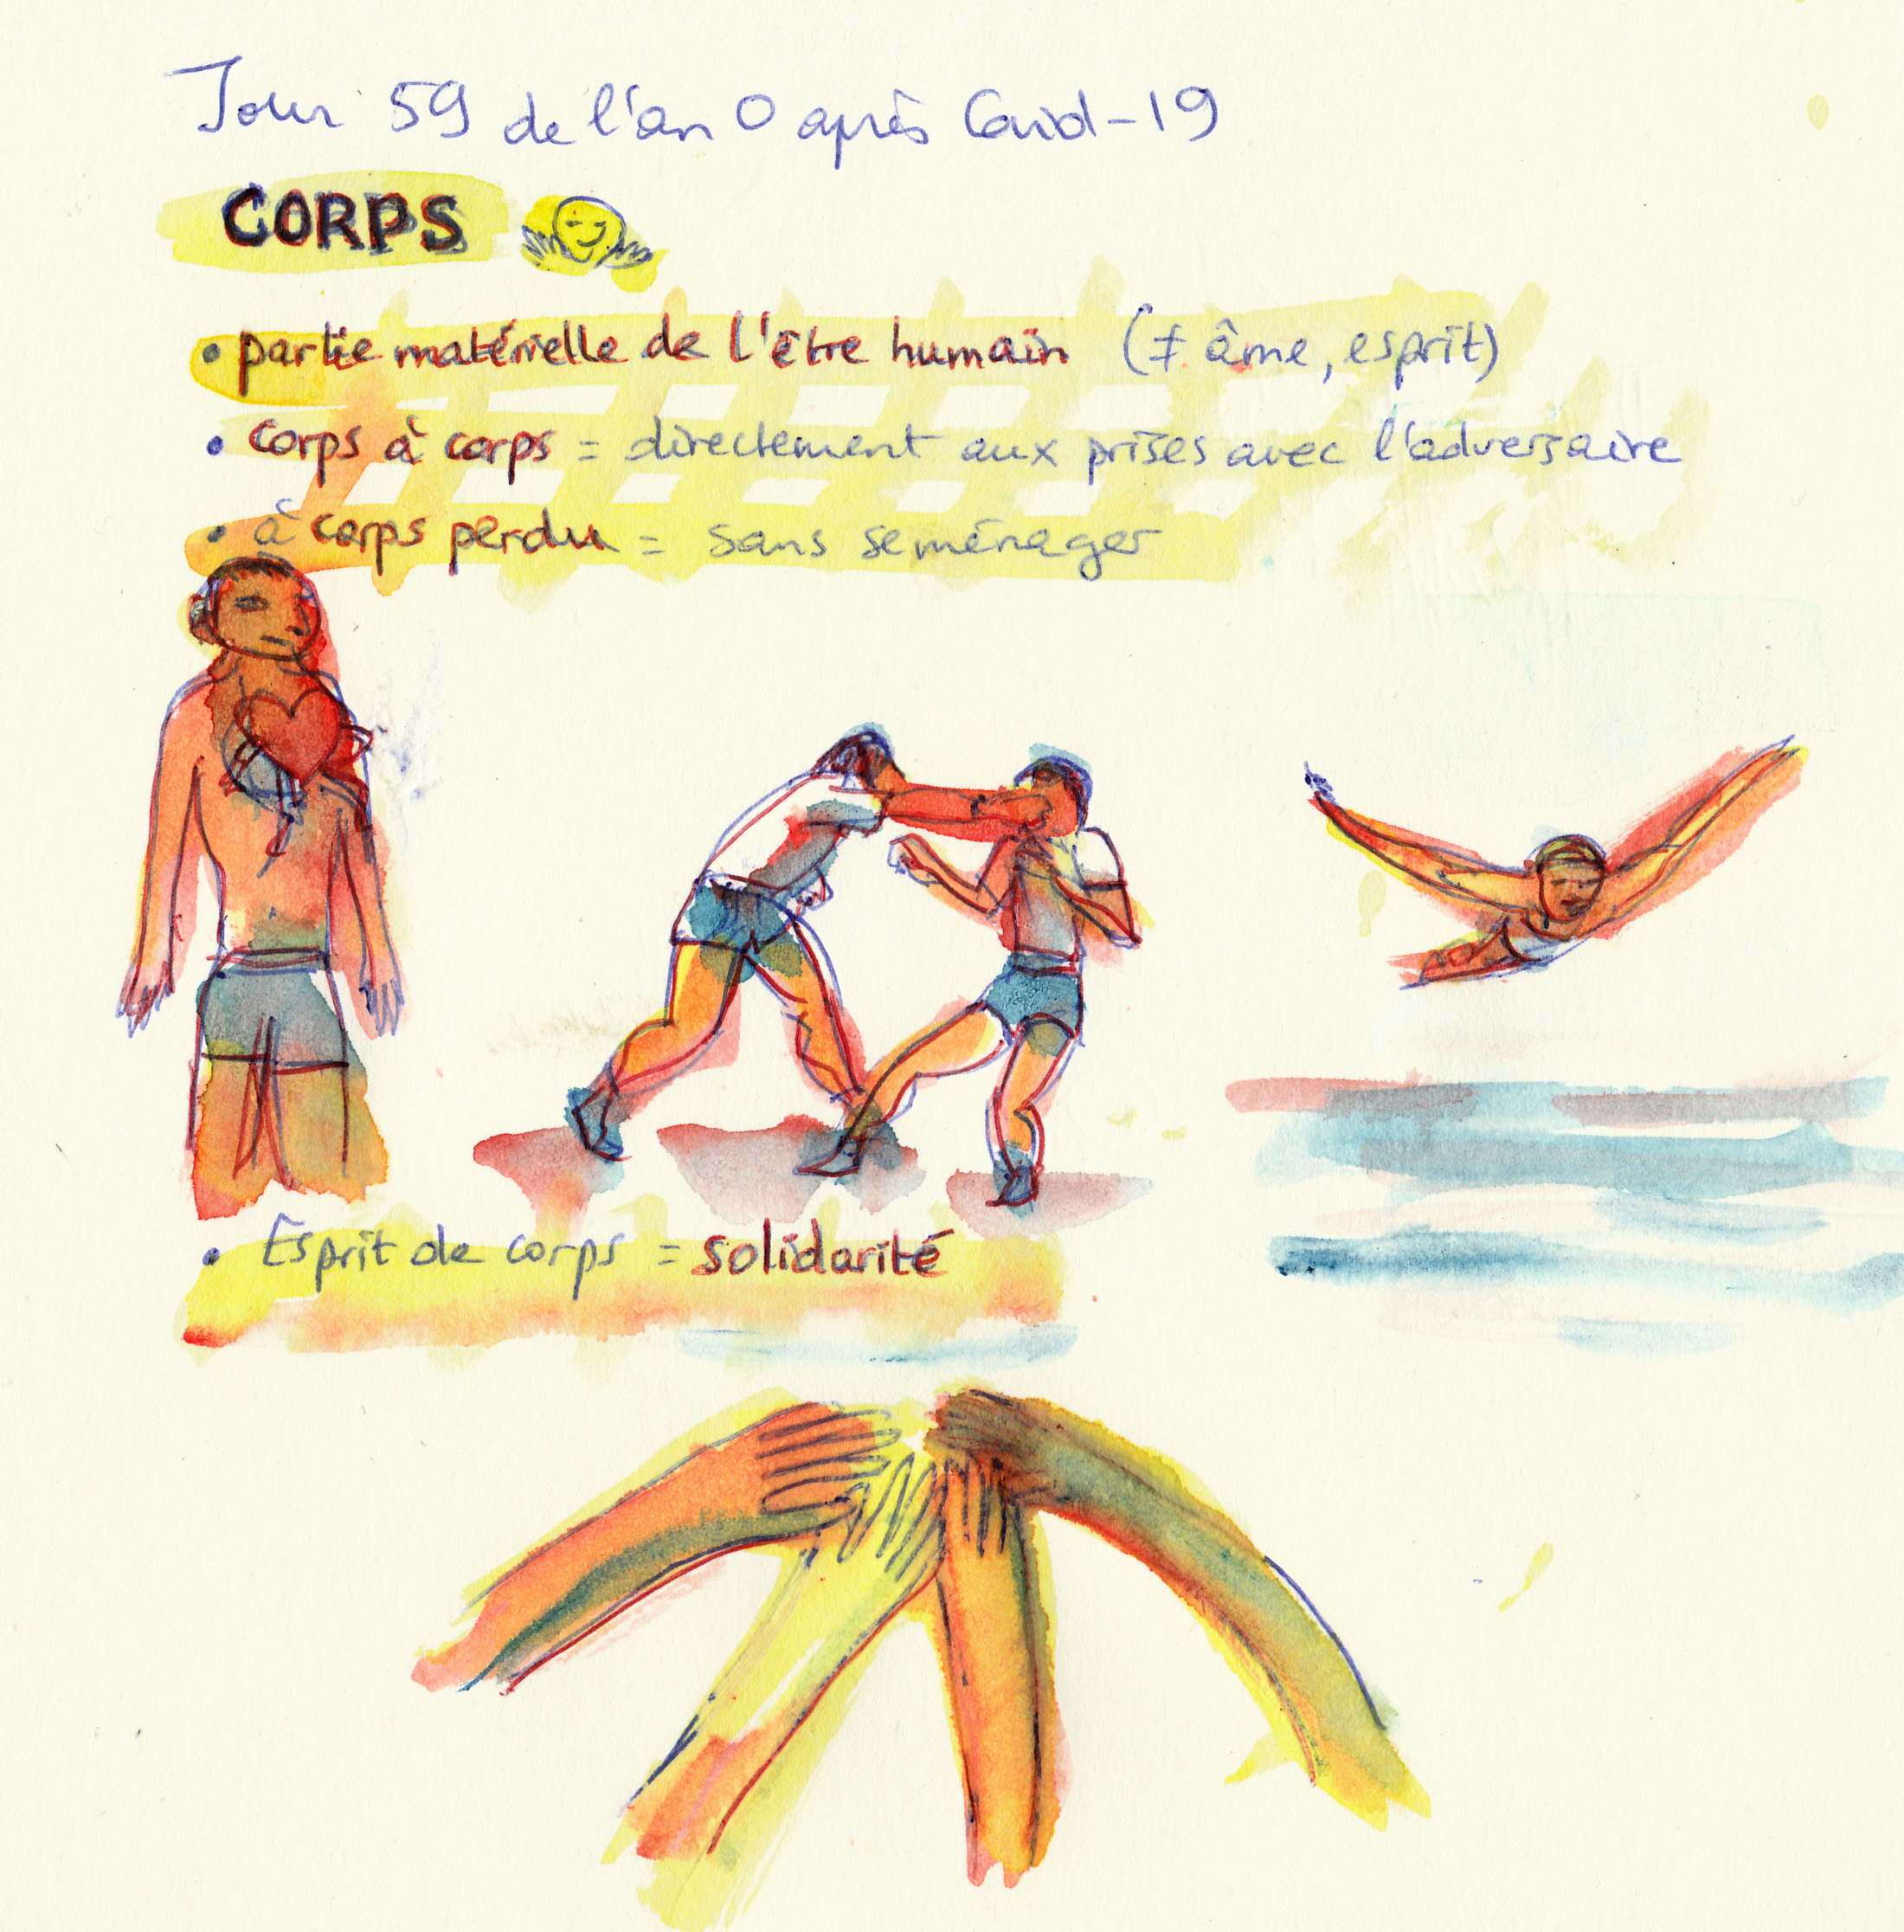 Jour 59 de l'an 0 après Covid-19
CORPS
• partie matérielle de l'être humain (≠ âme, esprit)
• corps à corps = directement aux prises avec l'adversaire
• à corps perdu = sans se ménager
• Esprit de corps = solidarité